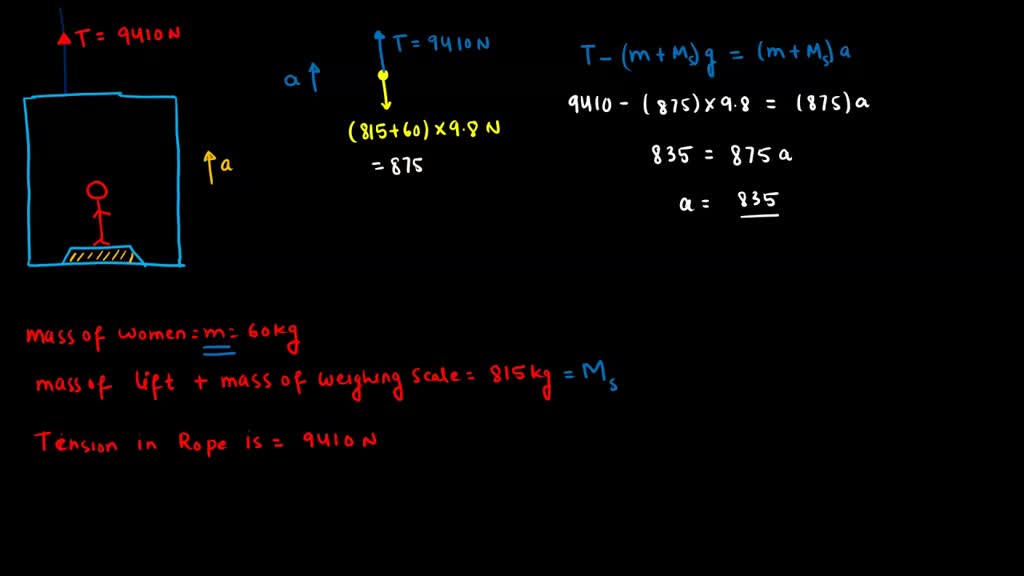 T = 9410 N
a
T = 9410 N
a
(815+60) × 9.8 N
= 875
T - (m + Ms) g = (m + Ms) a
9410 - (875) × 9.8 = (875) a
835 = 875 a
a = 835
mass of women = m = 60kg
mass of lift + mass of weighing scale = 815 kg = Ms
Tension in Rope is = 9410 N